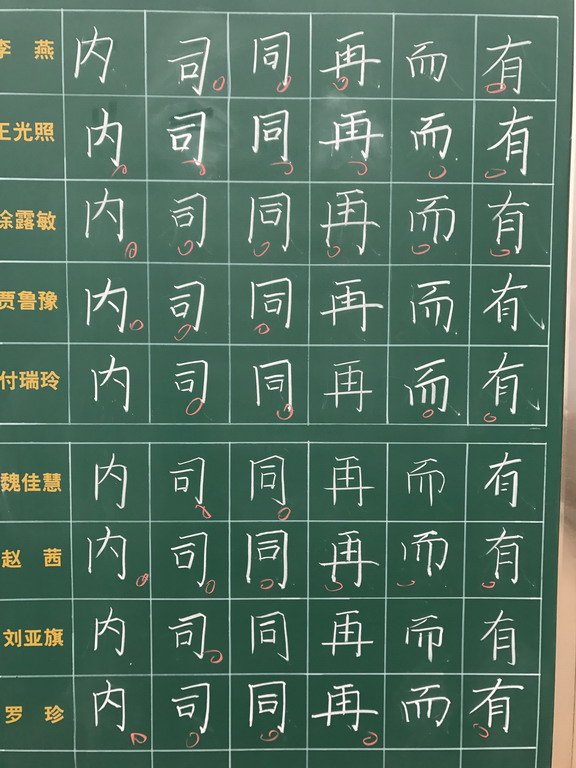 李燕 内 司 同 再 而 有
王光照 内 司 同 再 而 有
徐露敏 内 司 同 再 而 有
贾鲁豫 内 司 同 再 而 有
付瑞玲 内 司 同 再 而 有
魏佳慧 内 司 同 再 而 有
赵茜 内 司 同 再 而 有
刘亚旗 内 司 同 再 而 有
罗珍 内 司 同 再 而 有